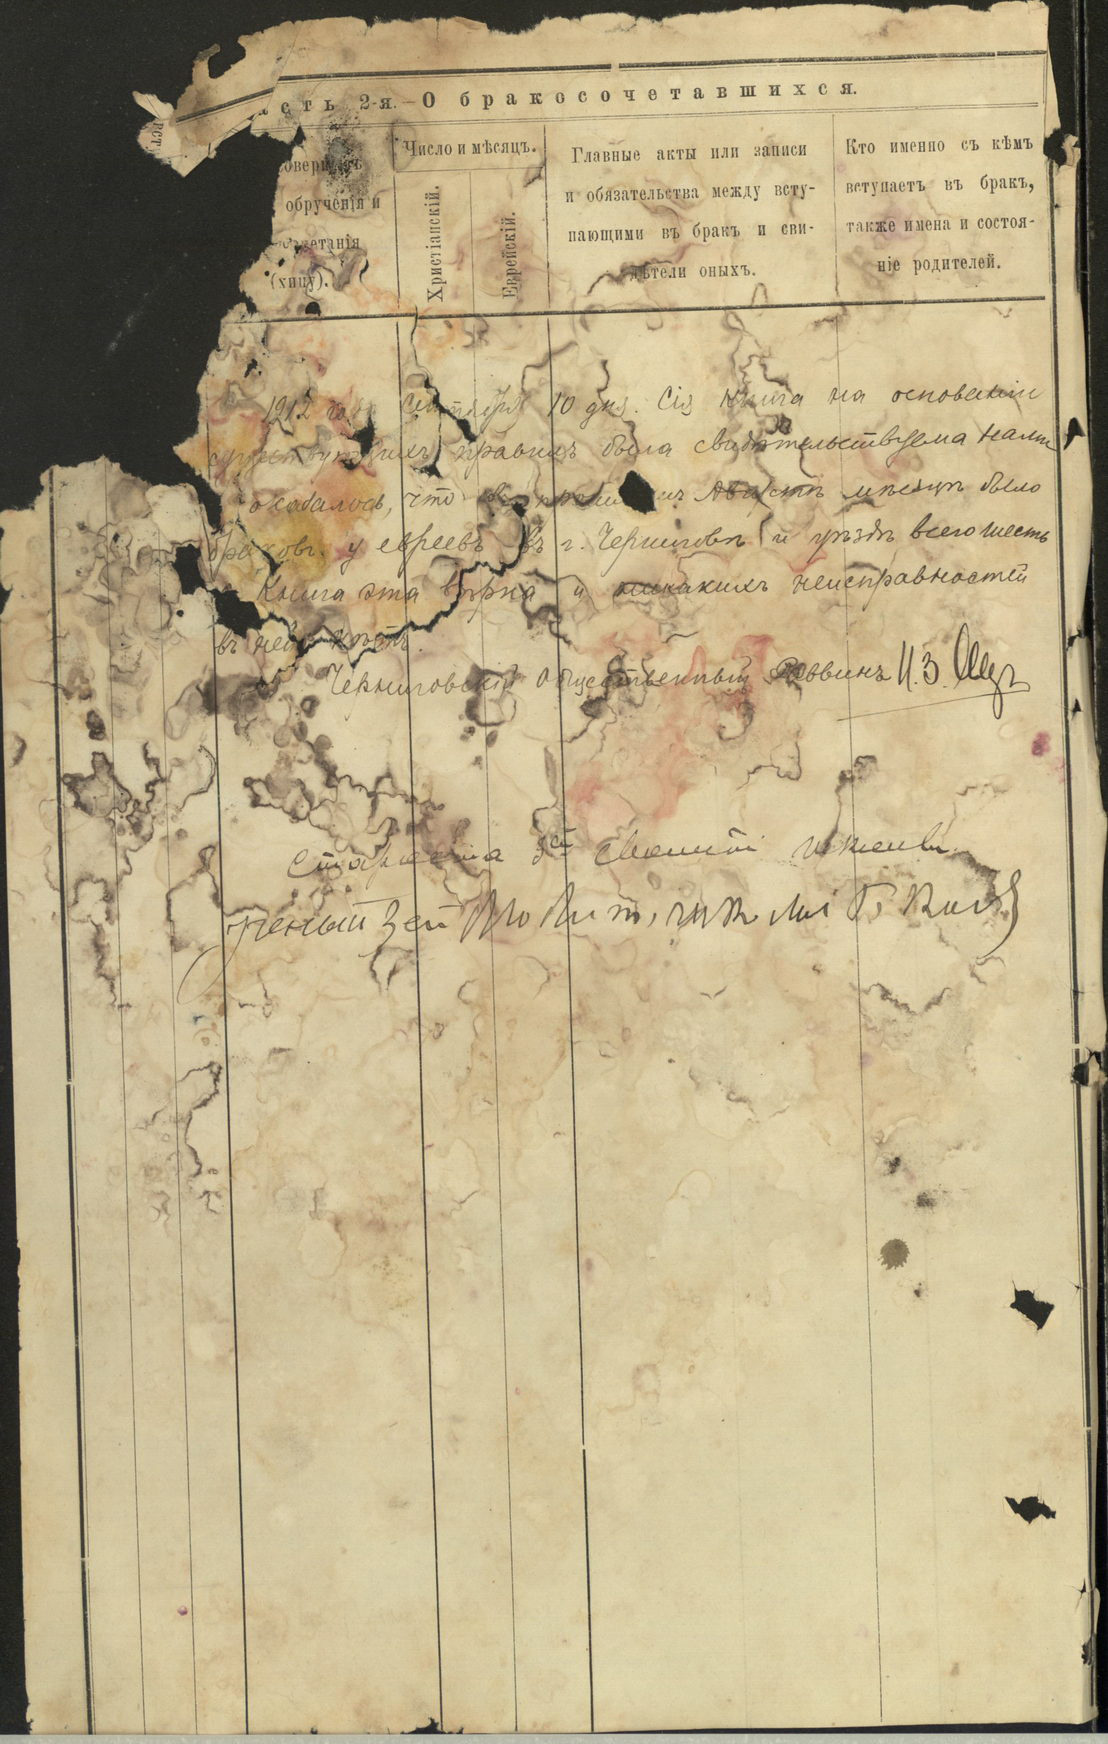 асть 2-я.—О бракосочетавшихся.
совершалъ
обрученія и
сочетанія
(хипу).
Число и мѣсяцъ.
Христіанскій.
Еврейскій.
Главные акты или записи
и обязательства между всту-
пающими въ бракъ и сви-
дѣтели оныхъ.
Кто именно съ кѣмъ
вступаетъ въ бракъ,
также имена и состоя-
ніе родителей.
1912 года Сентября 10 дня. Сія книга на основаніи
существующихъ правилъ была свидѣтельствуема нами
оказалось, что въ Августѣ мѣсяцѣ было
браковъ у евреевъ въ г. Черниговѣ и уѣздѣ всего шесть
Книга эта вѣрна и никакихъ неисправностей
въ ней нѣтъ.
Черниговскій Общественный Раввинъ И.З.
Староста
Ученый